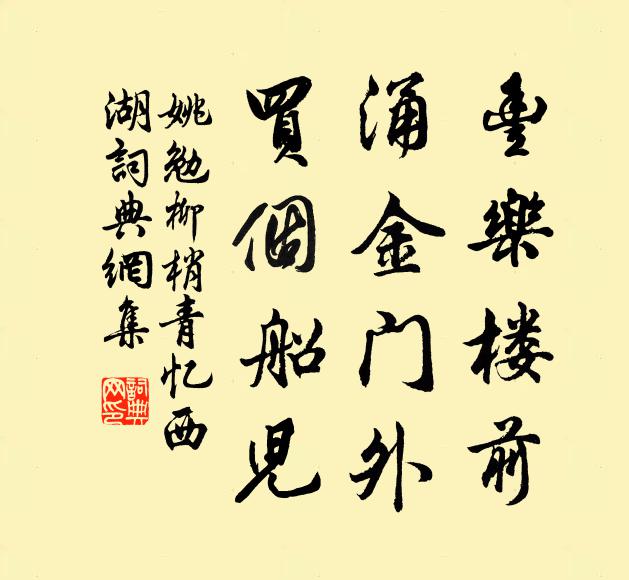 豊樂楼前
涌金门外
買個船児
姚勉柳梢青忆西
湖詞典網集
詞典网印